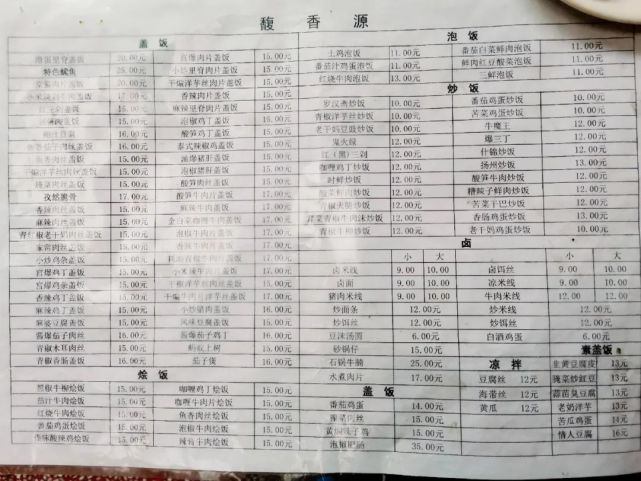 馥香源
盖饭 泡饭
滑蛋里脊盖饭 20.00元 宫爆肉片盖饭 15.00元 土鸡泡饭 11.00元 番茄白菜鲜肉泡饭 11.00元
特色鱿鱼 25.00元 小炒里脊肉片盖饭 15.00元 番茄汁鸡蛋泡饭 11.00元 鲜肉红豆酸菜泡饭 11.00元
20.00元 干煸洋芋丝肉片盖饭 15.00元 红烧牛肉泡饭 13.00元 三鲜泡饭 11.00元
17.00元 香辣肉片盖饭 15.00元 炒饭
15.00元 麻辣里脊肉片盖饭 15.00元 罗汉斋炒饭 10.00元 番茄鸡蛋炒饭 10.00元
15.00元 泡椒鸡丁盖饭 15.00元 青椒洋芋丝炒饭 10.00元 苦菜鸡蛋炒饭 10.00元
16.00元 酸笋鸡丁盖饭 15.00元 老干妈豆豉炒饭 10.00元 牛魔王 12.00元
鱼香茄子肉丝盖饭 16.00元 泰式辣椒鸡盖饭 15.00元 鬼火绿 12.00元 爆三丁 12.00元
鱼香肉丝盖饭 15.00元 油爆猪肝盖饭 15.00元 红（黑）三剁 12.00元 什锦炒饭 12.00元
干煸洋芋丝肉丝盖饭 15.00元 泡椒猪肝盖饭 15.00元 咖喱鸡丁炒饭 12.00元 扬州炒饭 13.00元
榨菜肉丝盖饭 15.00元 酸笋肉丝盖饭 15.00元 时鲜炒饭 12.00元 酸笋牛肉炒饭 12.00元
孜然脆骨 17.00元 酸笋牛肉盖饭 17.00元 酸菜鲜肉炒饭 12.00元 糟辣子鲜肉炒饭 12.00元
香辣肉丝盖饭 15.00元 麻辣牛肉盖饭 17.00元 青椒火腿炒饭 12.00元 苦菜干巴炒饭 12.00元
麻辣肉丝盖饭 15.00元 金白菜咖喱牛肉盖饭 17.00元 芹菜青椒牛肉沫炒饭 12.00元 香肠鸡蛋炒饭 13.00元
青椒老干妈肉丝盖饭 15.00元 泡椒牛肉盖饭 17.00元 青椒牛柳炒饭 12.00元 老干妈鸡蛋炒饭 10.00元
家常肉丝盖饭 15.00元 香辣牛肉片盖饭 17.00元 卤
小炒鸡杂盖饭 15.00元 17.00元 小 大 小 大
宫爆鸡丁盖饭 15.00元 小米辣牛肉盖饭 17.00元 卤米线 9.00 10.00 卤饵丝 9.00 10.00
宫爆鸡杂盖饭 15.00元 干椒洋芋肉丝盖饭 15.00元 卤面 9.00 10.00 凉米线 9.00 10.00
香辣鸡丁盖饭 15.00元 干煸牛肉丝洋芋丝盖饭 17.00元 猪肉米线 9.00 10.00 牛肉米线 12.00 12.00
麻辣鸡丁盖饭 15.00元 小炒猪肉盖饭 16.00元 炒面条 12.00元 炒米线 12.00元
麻婆豆腐盖饭 15.00元 风味豆腐盖饭 15.00元 炒饵丝 12.00元 炒饵丝 12.00元
酱爆茄子肉丝 16.00元 酱爆茄子鸡丁 16.00元 豆沫汤圆 6.00元 白酒鸡蛋 6.00元
青椒木耳肉丝 15.00元 蚂蚁上树 15.00元 砂锅饭 15.00元 素盖饭
青椒香肠盖饭 16.00元 茄子煲 16.00元 石锅牛腩 25.00元 凉拌 韭黄豆腐皮 13元
烩饭 水煮肉片 17.00元 豆腐丝 12元 腌菜炒红豆 13元
黑椒牛柳烩饭 15.00元 咖喱鸡丁烩饭 15.00元 盖饭 海带丝 12元 蒜苗臭豆腐 13元
茄汁牛肉烩饭 15.00元 咖喱牛肉片烩饭 15.00元 番茄鸡蛋 14.00元 黄瓜 12元 老奶洋芋 13元
红烧牛肉烩饭 15.00元 鱼香肉丝烩饭 15.00元 15.00元 苦瓜鸡蛋 14元
番茄鸡蛋烩饭 15.00元 泡椒牛肉烩饭 15.00元 黄焖辣子鸡 15.00元 情人豆腐 16元
香麻酸辣鸡烩饭 15.00元 辣椅牛肉烩饭 15.00元 泡椒肥肠 35.00元